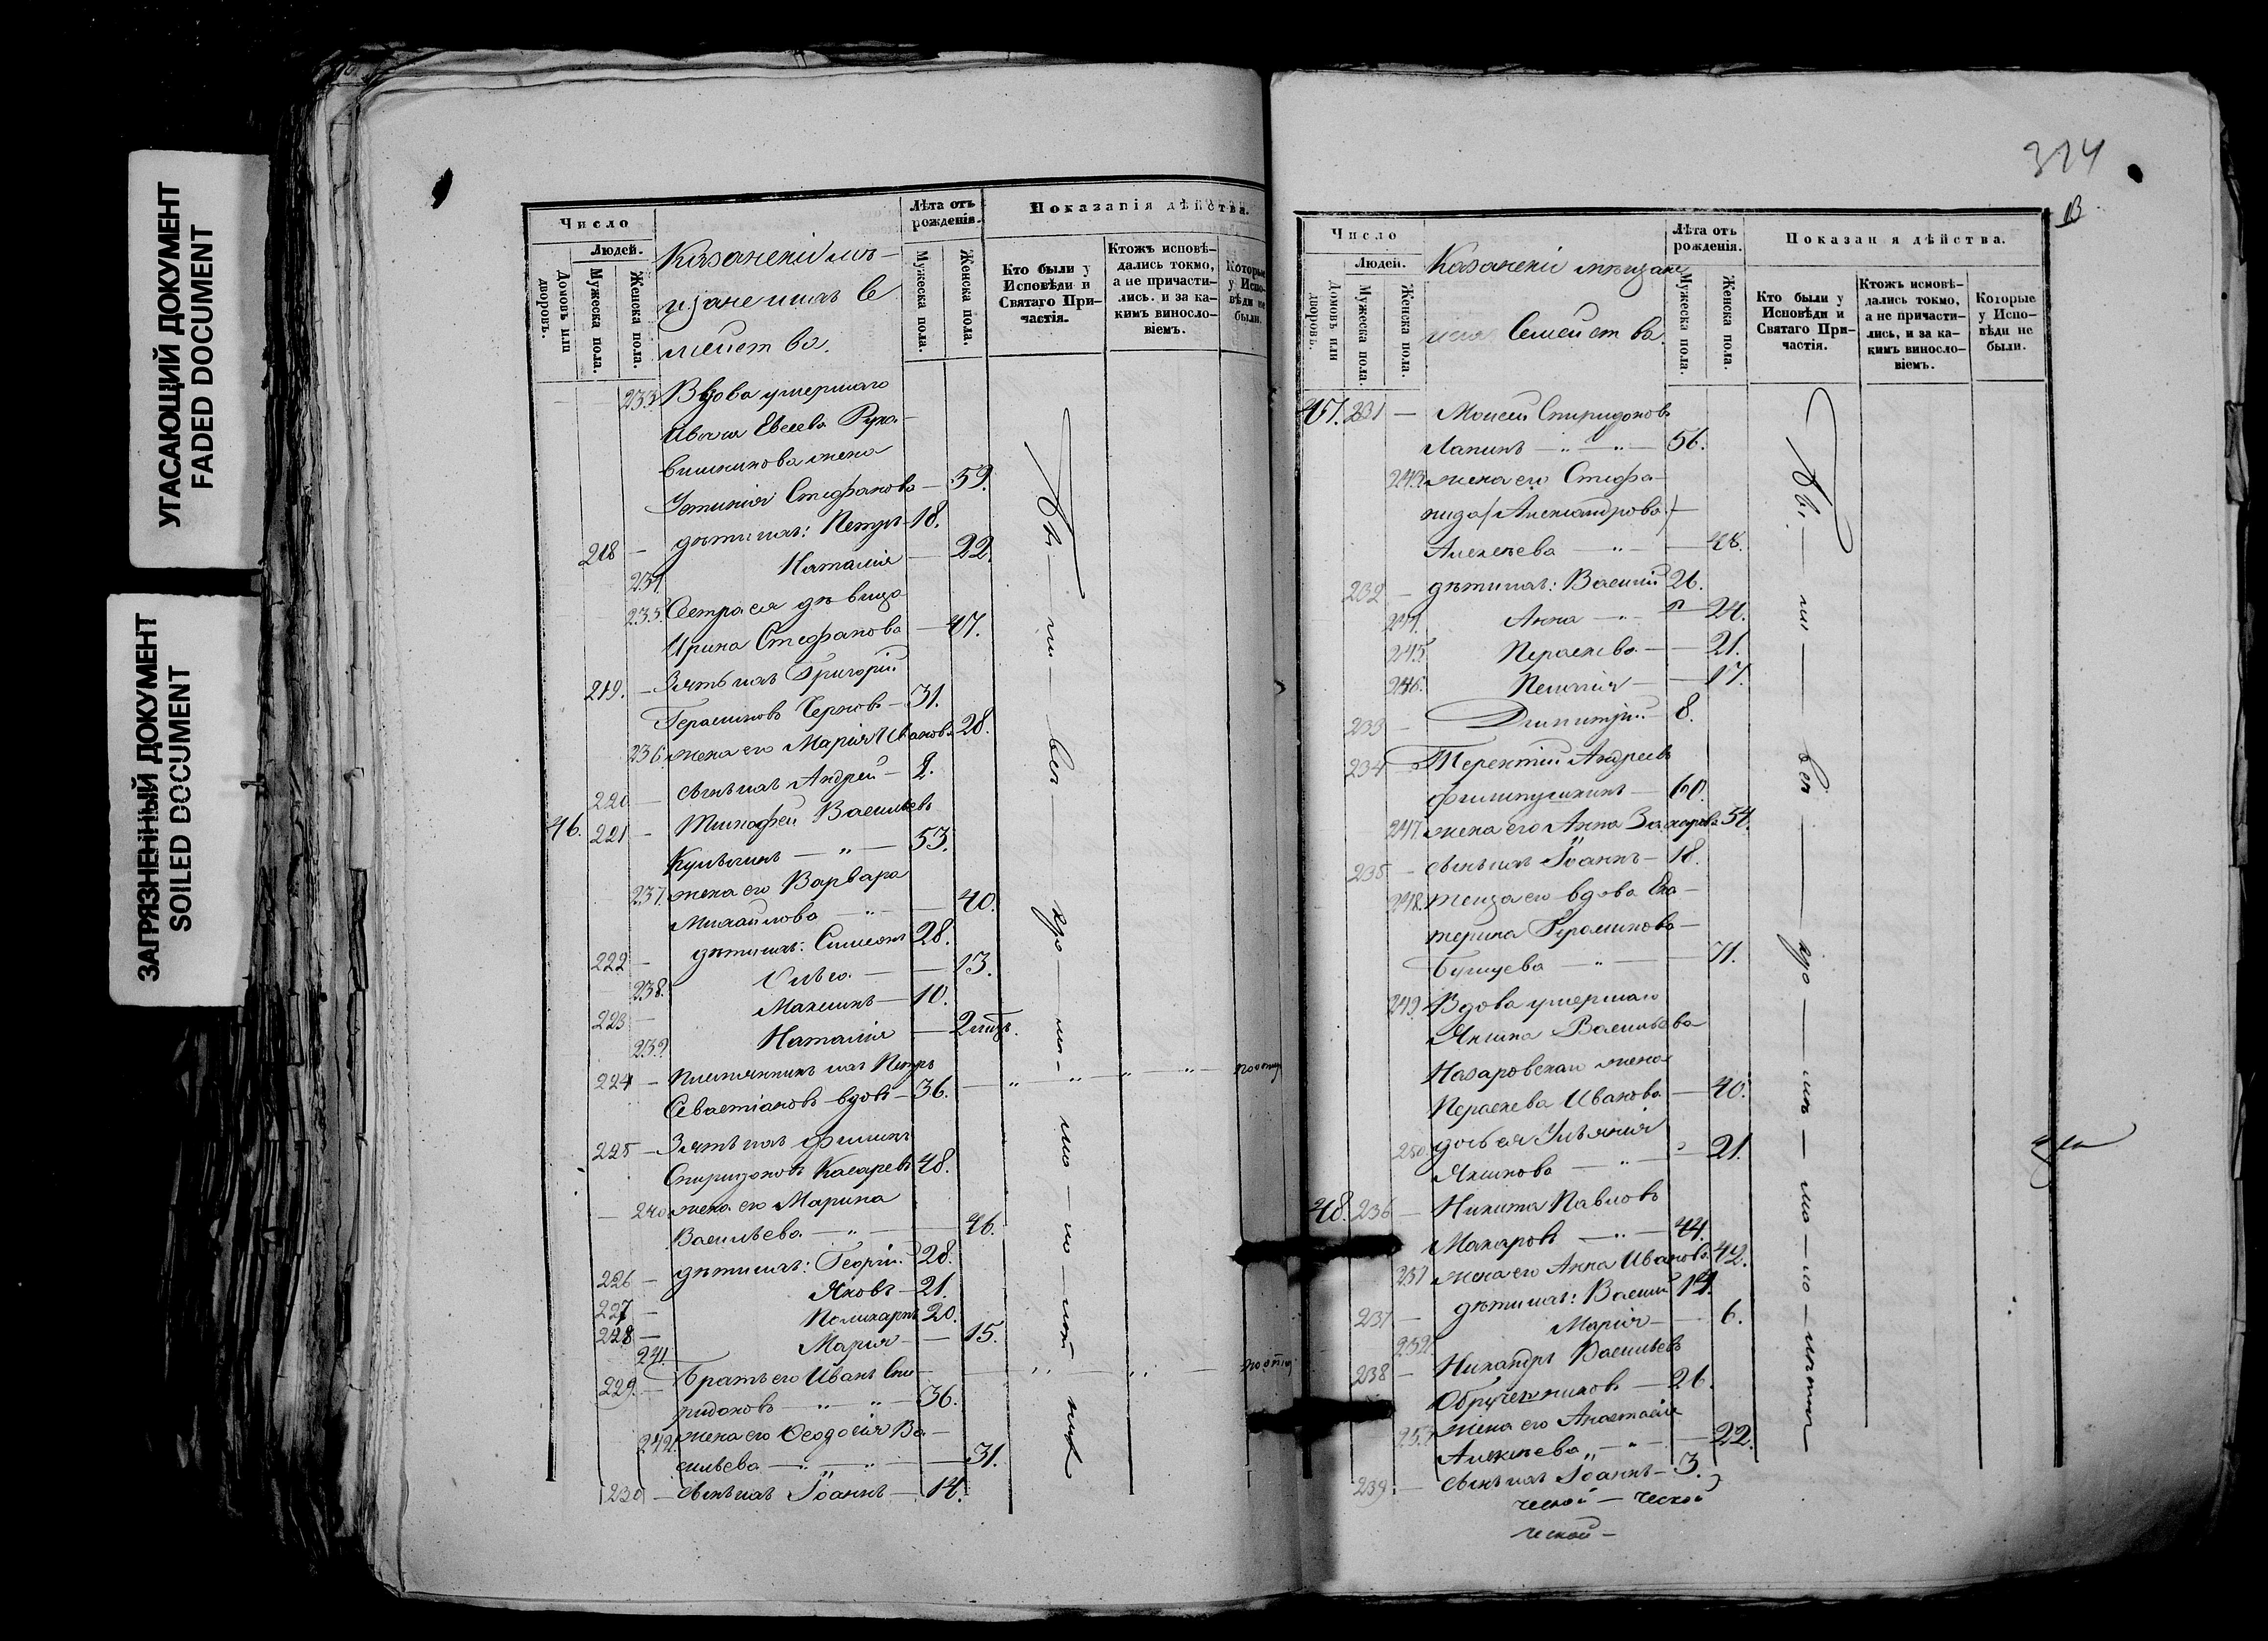 УГАСАЮЩИЙ ДОКУМЕНТ
FADED DOCUMENT
ЗАГРЯЗНЕННЫЙ ДОКУМЕНТ
SOILED DOCUMENT
Число
Людей.
Домовъ или дворовъ.
Мужеска пола.
Женска пола.
Казанскіи мѣ-
щане и ихъ се
мейства.
Лѣта отъ рожденія.
Мужеска пола.
Женска пола.
Показанія дѣйства.
Кто были у Исповѣди и Святаго При-частія.
Ктожъ исповѣ-дались токмо, а не причасти-лись. и за ка-кимъ винослo-віемъ.
Которые у Испо-вѣди не были.
233. Вдова умершаго
Ивана Евсева Рука-
вишникова жена
Устинія Стефанова — 59.
218 — дѣти ихъ: Петръ 18.
234. Наталія — 22.
235. Сестра ея дѣвица
Ирина Стефанова — 47.
219. — Зять ихъ Григорій
Герасимовъ Черновъ — 31.
236. жена его Марія Иванова 28.
220 — сынъ ихъ Андрей — 2.
46. 221 — Тимофей Васильевъ
— „ — 53.
237. жена его Варвара
Михайлова — „ — 40.
222 — дѣти ихъ: Симеонъ 28.
238. — 13.
223 — Максимъ — 10.
239 Наталія — 2
224 — Племянникъ ихъ Петръ
Севастіановъ вдовъ — 36. — „ — „ — „ — „ —
225 — Зять ихъ Филипъ
Спиридоновъ 48.
240 жена его Марина
Васильева — „ — 46.
226 — дѣти ихъ: Георгій 28.
227 — Яковъ — 21.
228 — Поликарпъ 20.
241. Марія — 15.
229 — Братъ его Иванъ Спи
ридоновъ — „ — „ — 36.
242. жена его Ѳеодосія Ва-
сильева — „ — „ — 31.
230 — сынъ ихъ Іоаннъ — 14.
324
Число
Людей.
Домовъ или дворовъ.
Мужеска пола.
Женска пола.
Казанскіи мѣщане
и ихъ Семейства.
Лѣта отъ рожденія.
Мужеска пола.
Женска пола.
Показан я дѣйства.
Кто были у Исповѣди и Святаго При-частія.
Ктожъ исповѣ-дались токмо, а не причасти-лись, и за ка-кимъ винослo-віемъ.
Которые у Испо-вѣди не были.
47. 231 — Моисей Спиридоновъ
Лапинъ — „ — „ — 56.
243. жена его Стефа-
нида (Александрова) —
Алексѣева — „ — 48.
232 — дѣти ихъ: Василій 26.
244. Анна — „ — 24.
245. Параскева — 21.
246. Пелагія — 17.
233 — Димитрій — 8.
234 — Терентій Андреевъ
— 60.
247. жена его Анна Захарова 54.
235 — сынъ ихъ Іоаннъ — 18.
248. теща его вдова Ека-
терина Герасимова —
— „ — 71.
249. Вдова умершаго
Якима Васильева
Назаровскаго жена
Параскева Иванова — 40.
250. дочь ея Ульянія
Якимова — „ — 21.
48. 236 — Никита Павловъ
Макаровъ — „ — 44.
251 жена его Анна Иванова 42.
237 — дѣти ихъ: Василій 14.
252. Марія — 6.
238 — Никандръ Васильевъ
Обручниковъ — 26.
253 жена его Анастасія
Алексѣева „ — „ — 22.
239. — сынъ ихъ Іоаннъ — 3.